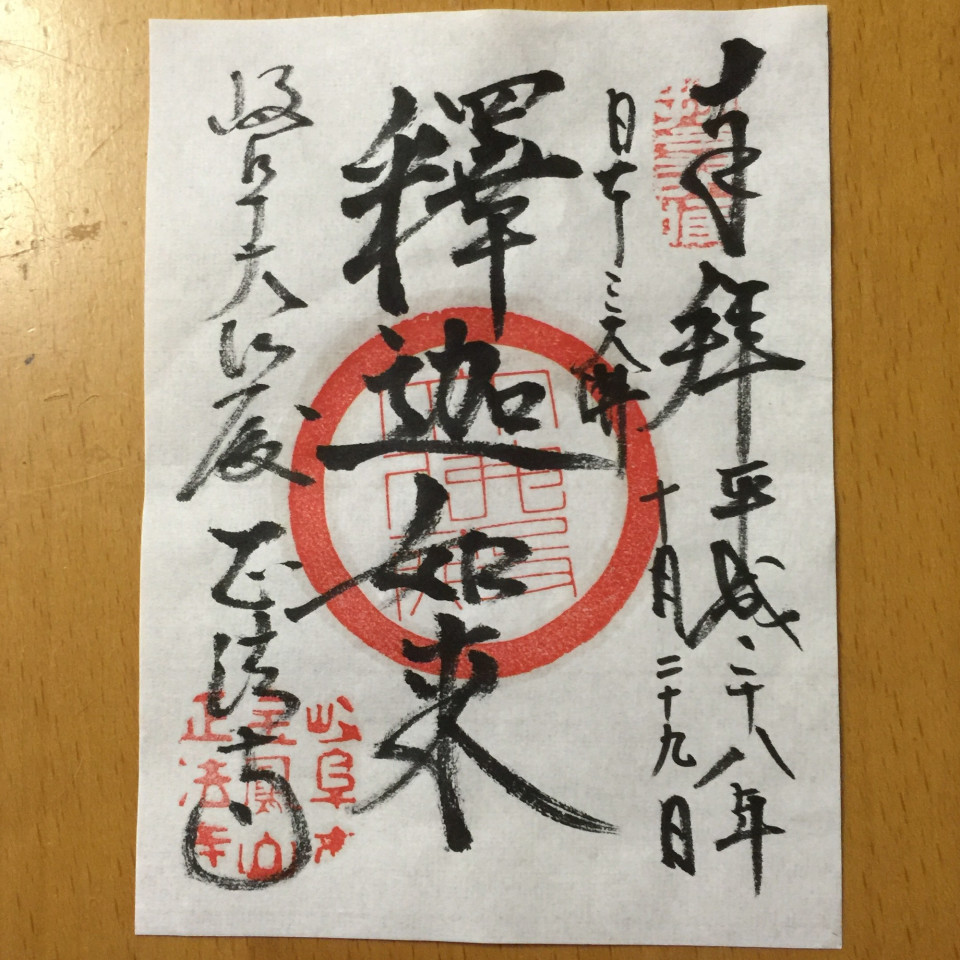 奉拝 平成二十八年
十月二十九日
日本三大佛
釋迦如来
岐阜大仏殿
正法寺
岐阜市
金鳳山
正法寺